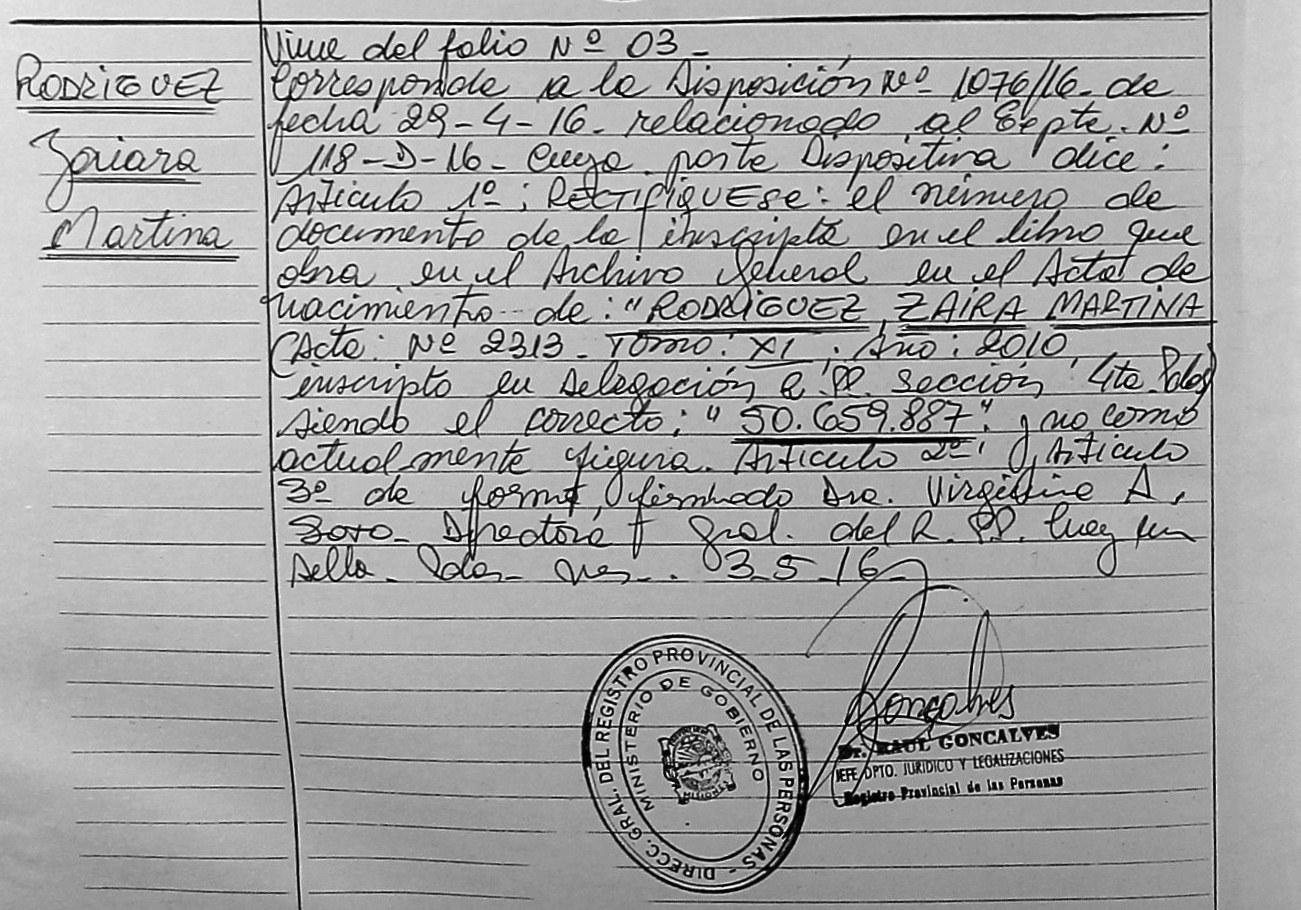 RODRIGUEZ
Zaiara
Martina
Viene del folio Nº 03-
Corresponde a la Disposición Nº 1076/16- de
fecha 29-4-16- relacionado al Expte. Nº
118-D-16- Cuya parte Dispositiva dice:
Artículo 1º: RECTIFIQUESE: el número de
documento de la inscripta en el libro que
obra en el Archivo General en el Acta de
nacimiento de: "RODRIGUEZ, ZAIRA MARTINA
(Acta: Nº 2313- TOMO: XI; Año: 2010,
inscripto en Delegación R.PP. Sección 4ta Pdas)
siendo el correcto: "50.659.887" y no como
actualmente figura. Artículo 2º; Artículo
3º de forma, firmado Dra. Virginia A.
Soto- Directora Gral. del R. PP. hay un
sello- Pdas- Mes-. 03-5-16-
Goncalves
Dr. RAUL GONCALVES
JEFE DPTO. JURIDICO Y LEGALIZACIONES
Registro Provincial de las Personas
DIRECC. GRAL. DEL REGISTRO PROVINCIAL DE LAS PERSONAS -
MINISTERIO DE GOBIERNO
MISIONES